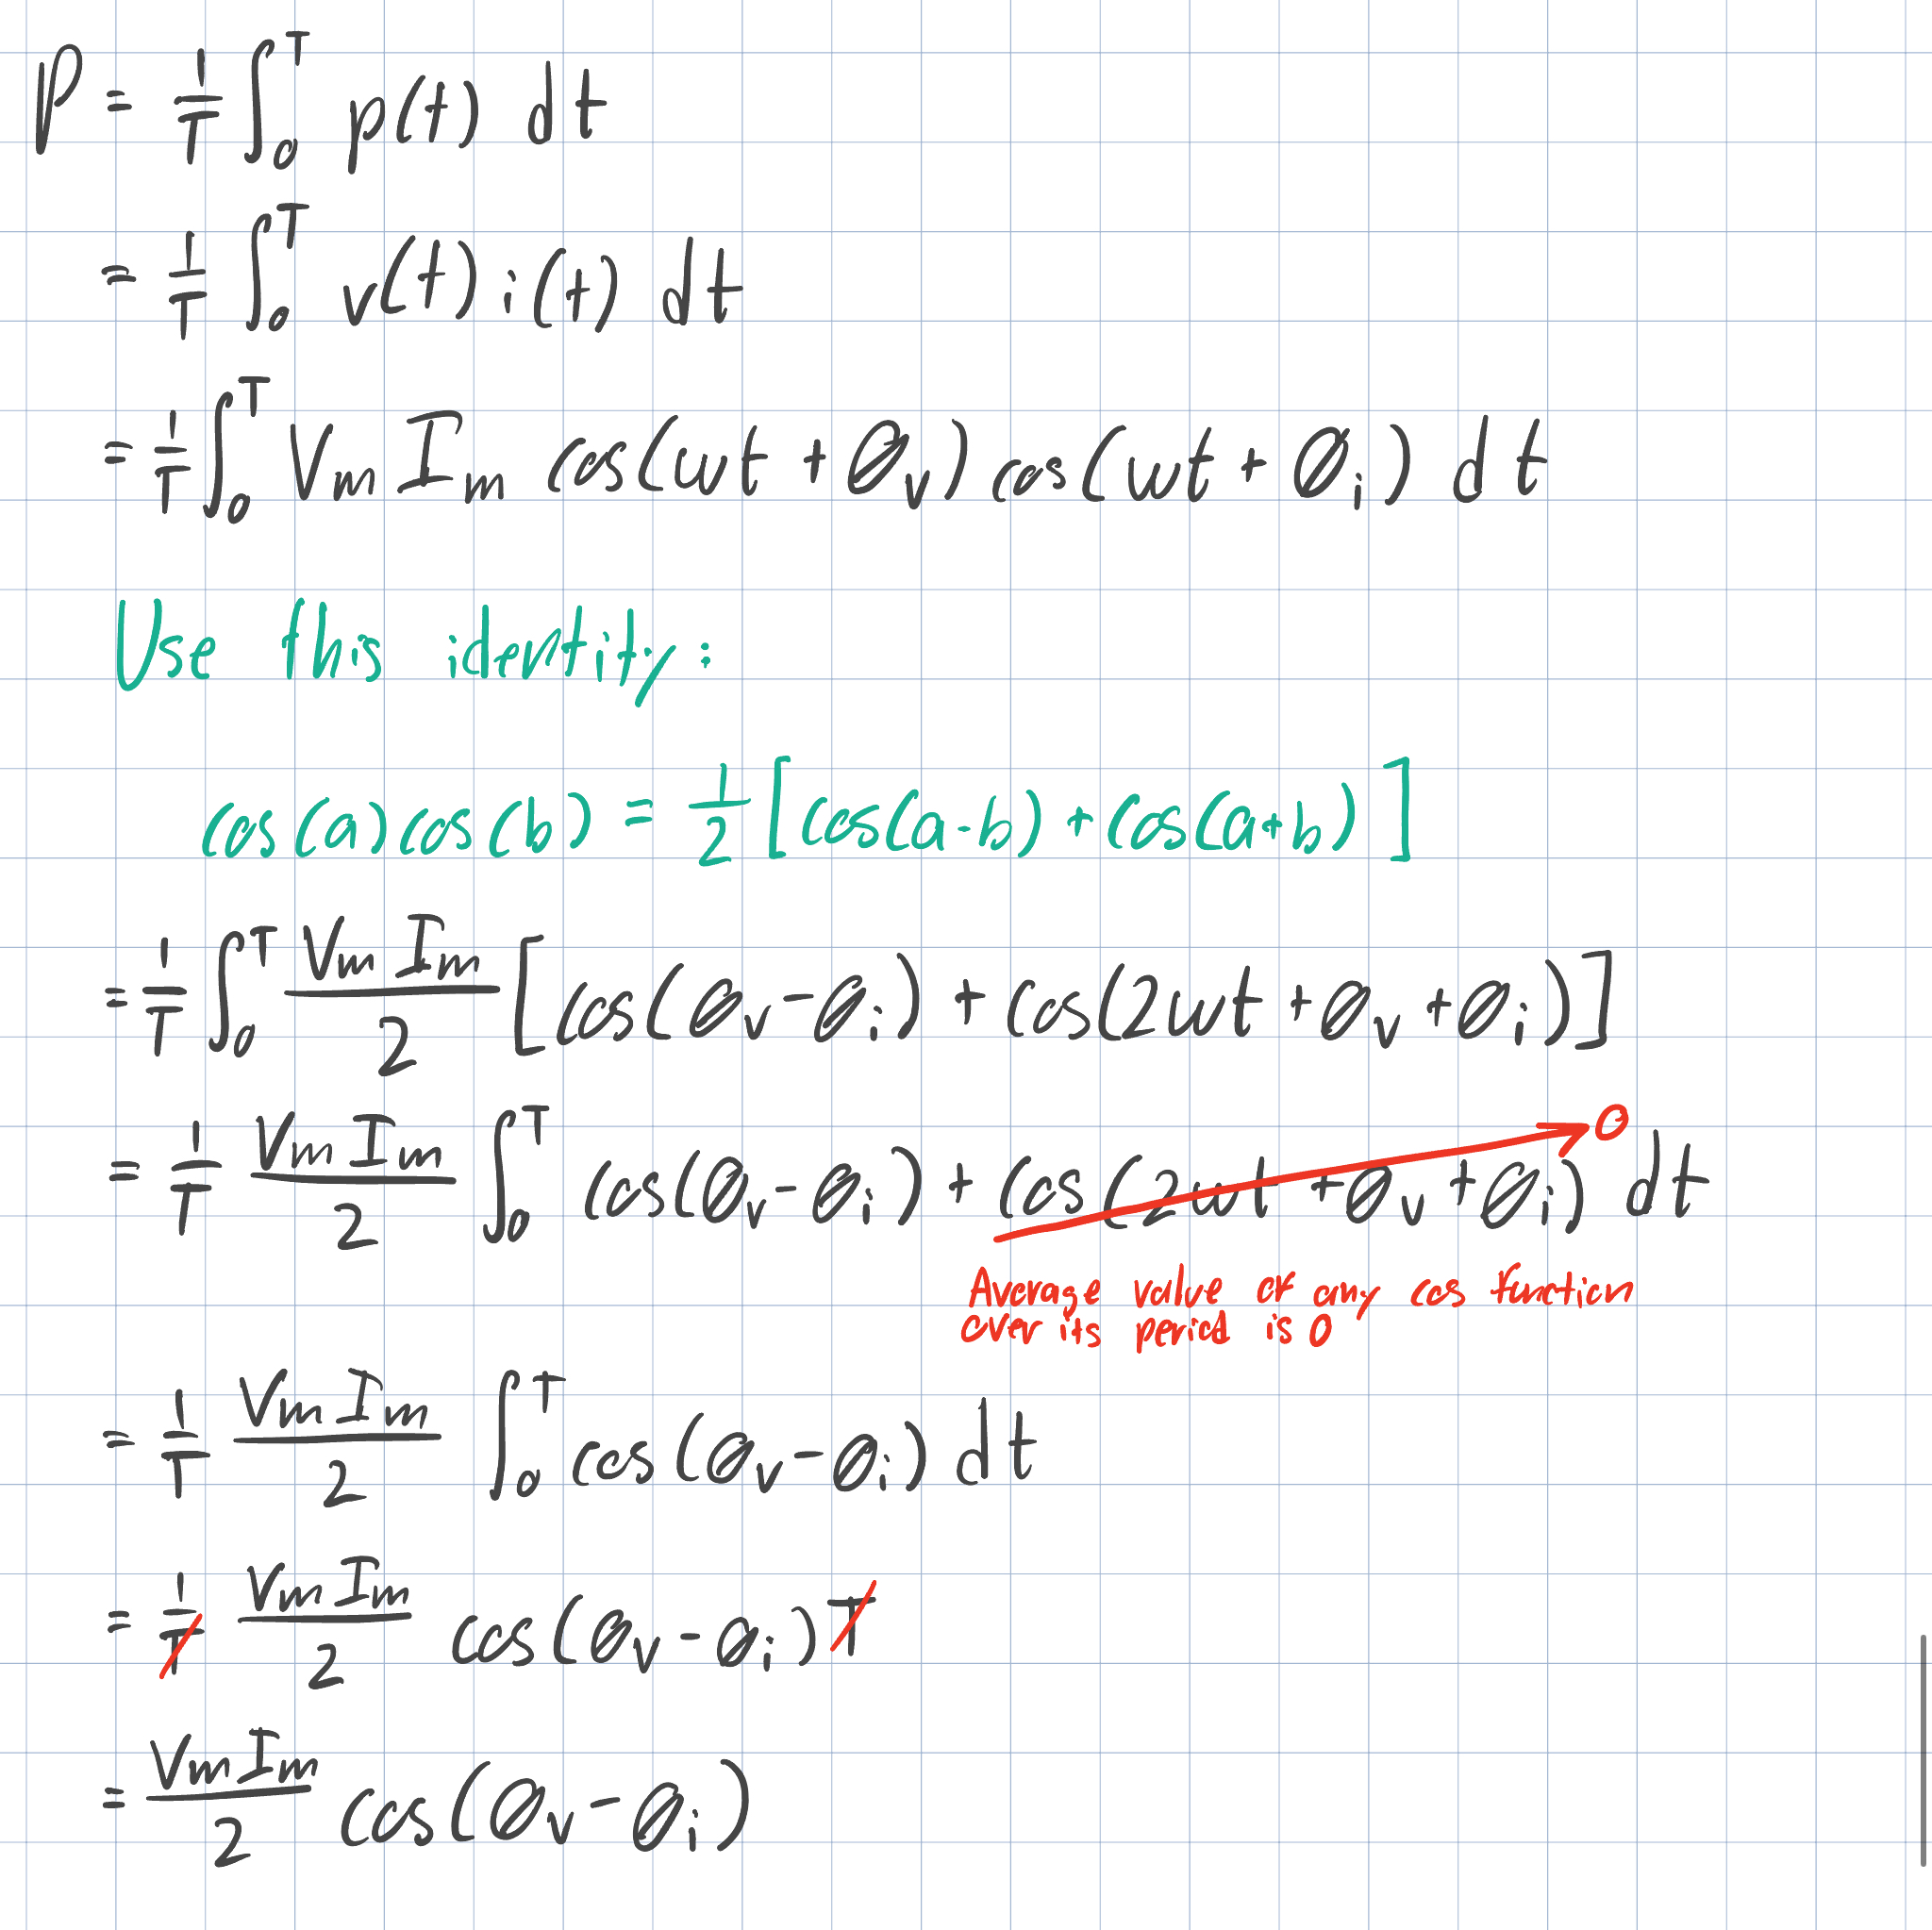 P = 1/T ∫₀ᵀ p(t) dt
= 1/T ∫₀ᵀ v(t) i(t) dt
= 1/T ∫₀ᵀ Vm Im cos(ωt + Øv) cos(ωt + Øi) dt
Use this identity:
cos(a) cos(b) = 1/2 [cos(a-b) + cos(a+b)]
= 1/T ∫₀ᵀ Vm Im/2 [cos(Øv - Øi) + cos(2ωt + Øv + Øi)]
= 1/T Vm Im/2 ∫₀ᵀ cos(Øv - Øi) + cos(2ωt + Øv + Øi) dt 0
Average value of any cos function
over its period is 0
= 1/T Vm Im/2 ∫₀ᵀ cos(Øv - Øi) dt
= 1/T Vm Im/2 cos(Øv - Øi) T
= Vm Im/2 cos(Øv - Øi)